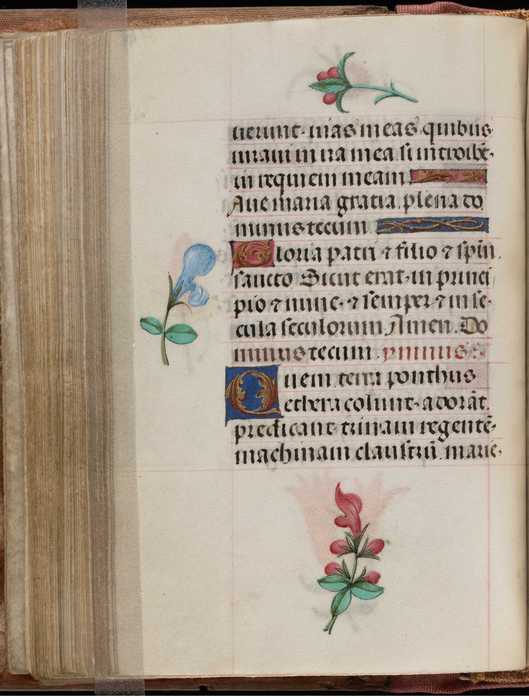 uerunt · uias meas quibus
iuraui in ira mea si introibt̄
in requiem meam
Aue maria gratia plena do
minus tecum
Gloria patri ⁊ filio ⁊ spiri
sancto Sicut erat in princi
pio ⁊ nunc · ⁊ semper ⁊ in se
cula seculorum Amen. Do
minus tecum . ymnus
Quem terra ponthus
ethera colunt · adorāt
predicant · trinam regentē
machinam claustrū marie ·